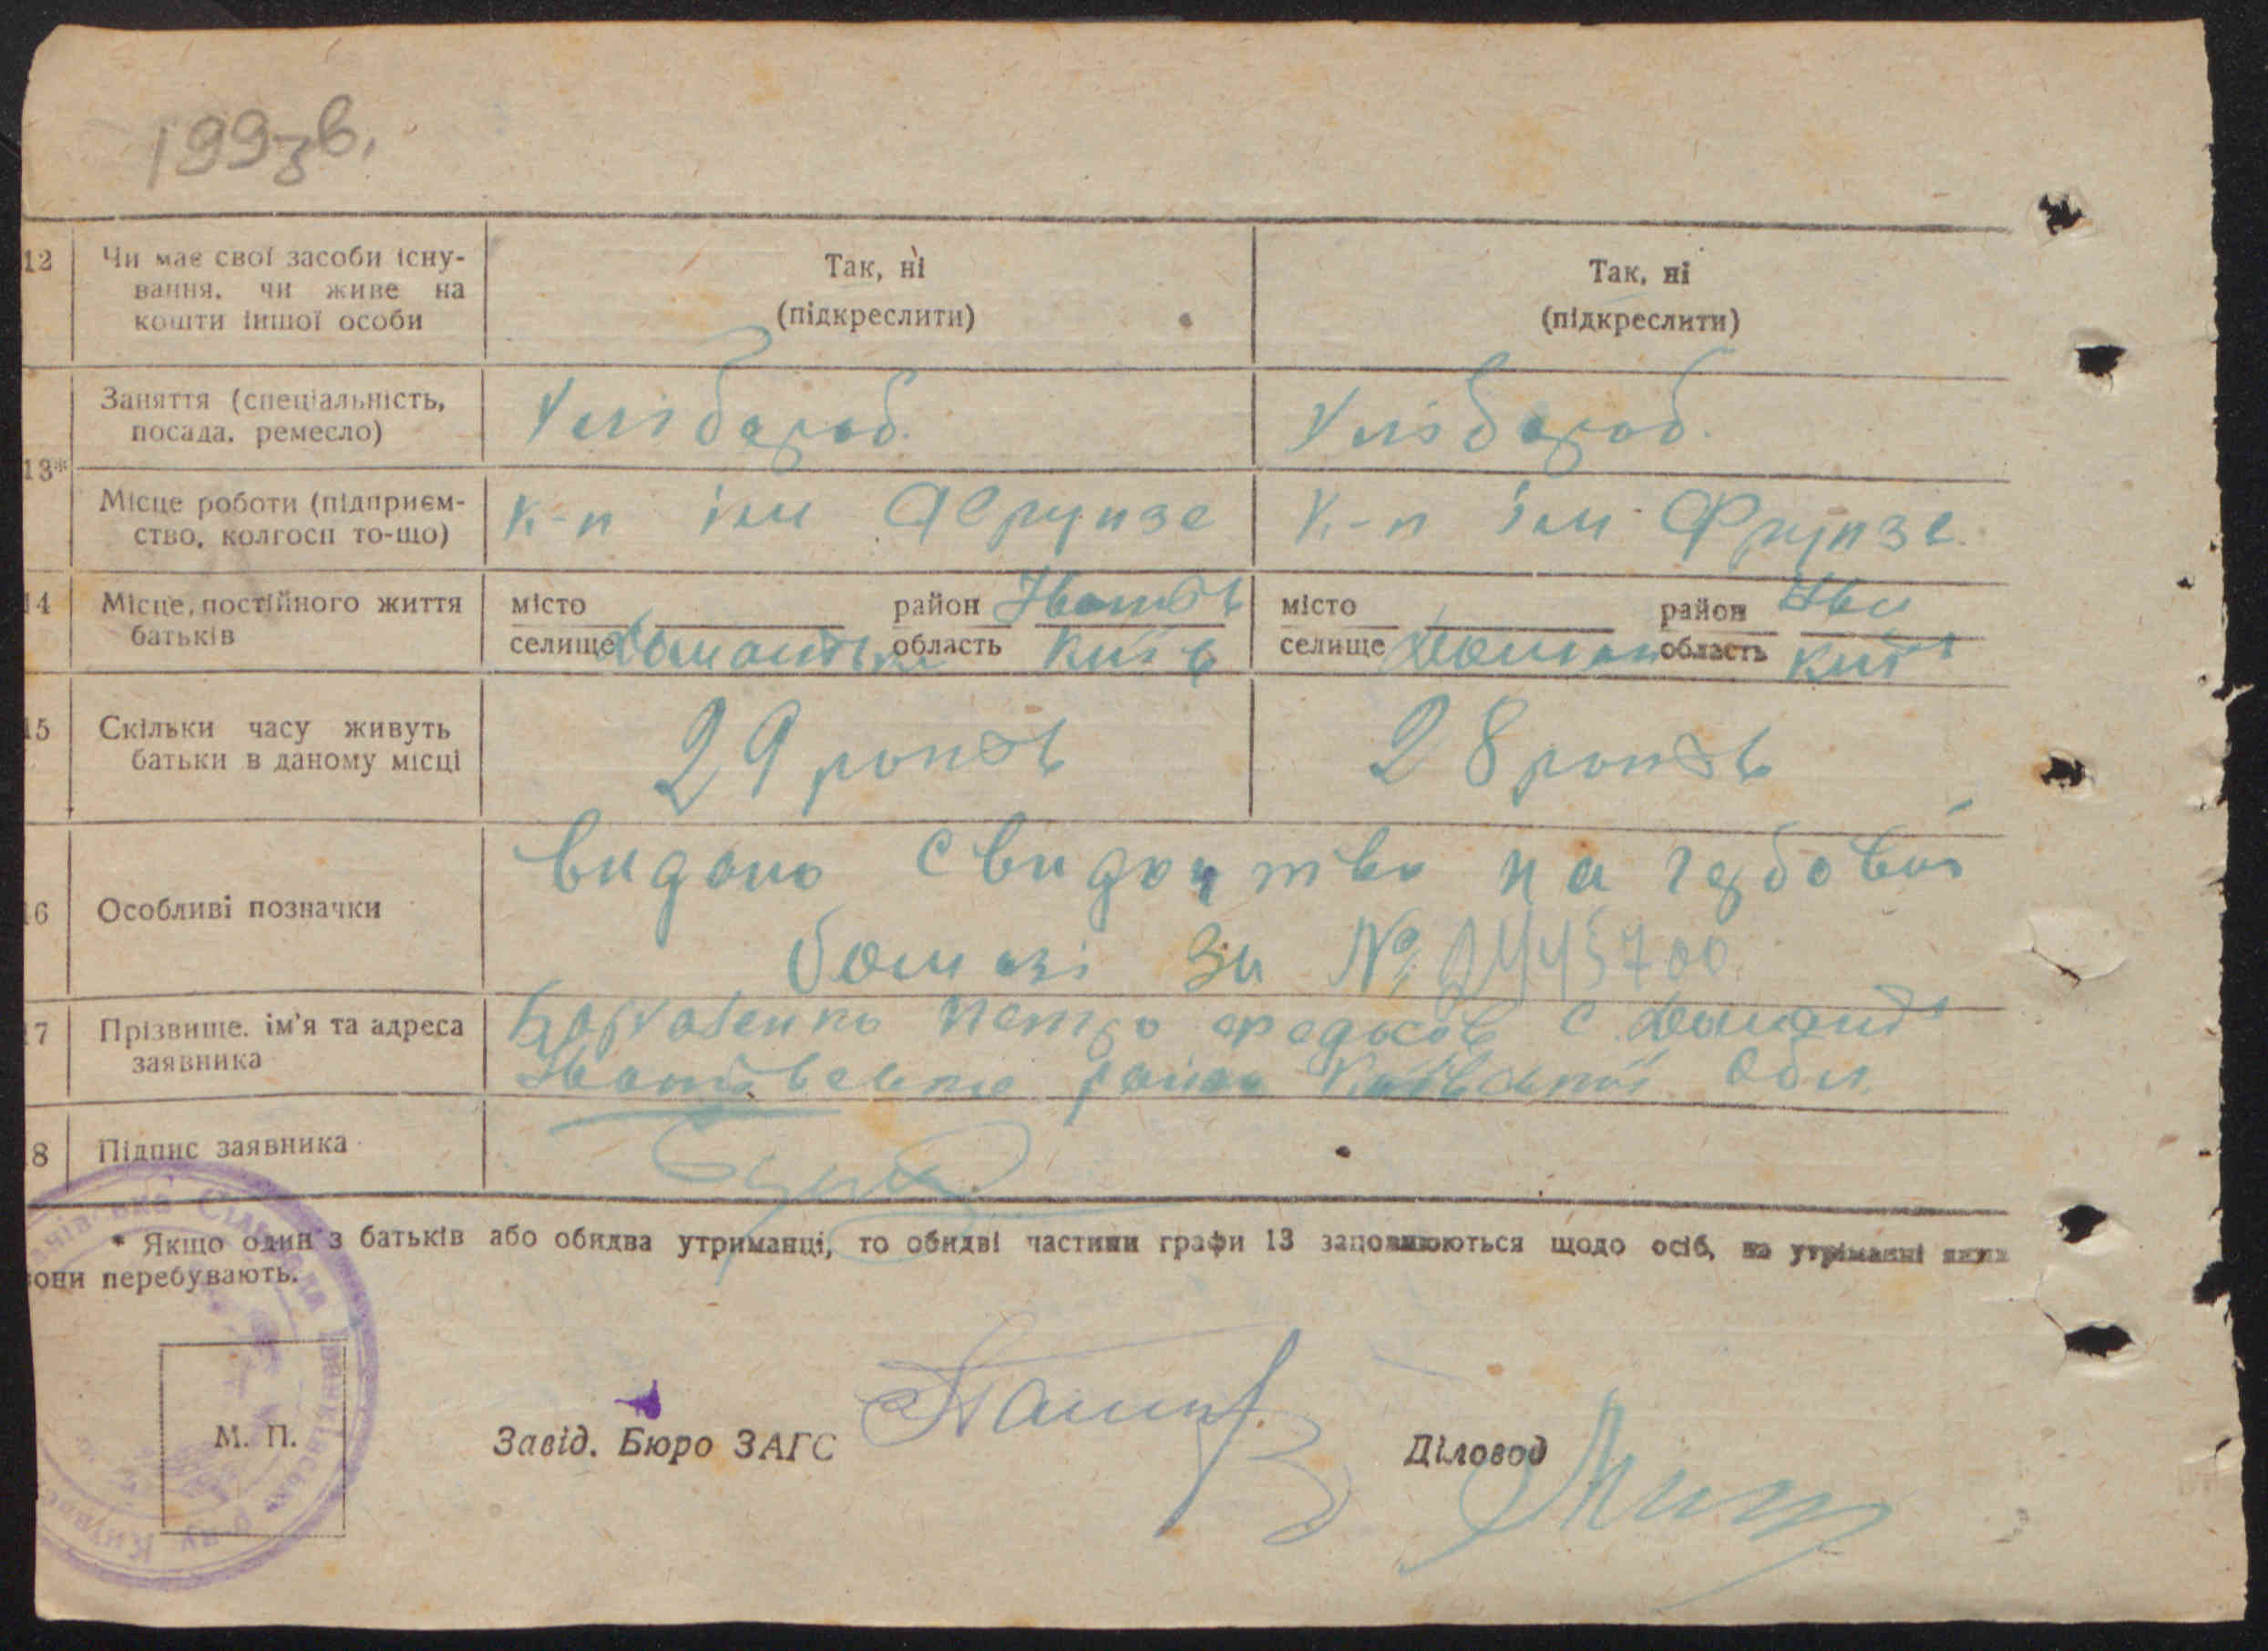 199зв.
12 Чи має свої засоби існу-
вання, чи живе на
кошти іншої особи
Так, ні
(підкреслити)
Так, ні
(підкреслити)
13*
Заняття (спеціальність,
посада, ремесло)
Хлібороб.
Хлібороб.
Місце роботи (підприєм-
ство, колгосп то-що)
К-п ім Фрунзе
К-п ім Фрунзе
14 Місце постійного життя
батьків
місто район
селище область Київ
місто район Іва
селище область Київ
15 Скільки часу живуть
батьки в даному місці
29 років
28 років
16 Особливі позначки
видано свидоцтво на гербовій
бомазі за №
17 Прізвище, ім'я та адреса
заявника
Петро с.
район Київської Обл.
18 Підпис заявника
* Якщо один з батьків або обидва утриманці, то обидві частини графи 13 заповнюються щодо осіб, на утриманні яких
вони перебувають.
М. П.
Завід. Бюро ЗАГС
Діловод